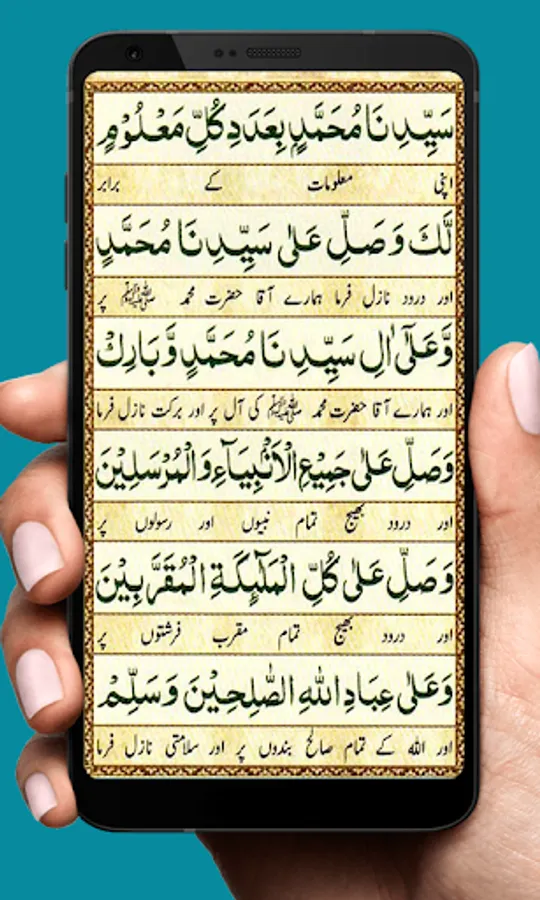 سَيِّدِنَا مُحَمَّدٍ بِعَدَدِ كُلِّ مَعْلُوْمٍ
اپنی معلومات کے برابر
لَّكَ وَصَلِّ عَلٰى سَيِّدِنَا مُحَمَّدٍ
اور درود نازل فرما ہمارے آقا حضرت محمد ﷺ پر
وَّعَلٰٓى اٰلِ سَيِّدِنَا مُحَمَّدٍ وَّبَارِكْ
اور ہمارے آقا حضرت محمد ﷺ کی آل پر اور برکت نازل فرما
وَصَلِّ عَلٰى جَمِيْعِ الْاَنْۢبِيَآءِ وَالْمُرْسَلِيْنَ
اور درود بھیج تمام نبیوں اور رسولوں پر
وَصَلِّ عَلٰى كُلِّ الْمَلٰٓئِكَةِ الْمُقَرَّبِيْنَ
اور درود بھیج تمام مقرب فرشتوں پر
وَعَلٰى عِبَادِ اللّٰهِ الصّٰلِحِيْنَ وَسَلِّمْ
اور اللہ کے تمام صالح بندوں پر اور سلامتی نازل فرما